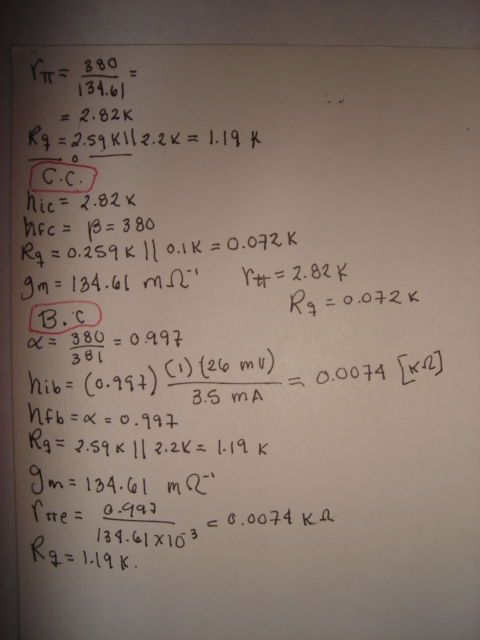 rπ = 380/134.61 =
= 2.82K
Rg = 2.59K || 2.2K = 1.19 K
C.C.
hic = 2.82 K
hfc = β = 380
Rg = 0.259K || 0.1K = 0.072 K
gm = 134.61 mΩ⁻¹ rπ = 2.82 K
Rg = 0.072 K
B.C
α = 380/381 = 0.997
hib = (0.997) (1)(26 mV)/3.5 mA = 0.0074 [KΩ]
hfb = α = 0.997
Rg = 2.59 K || 2.2K = 1.19 K
gm = 134.61 mΩ⁻¹
rπe = 0.997/134.61×10⁻³ = 0.0074 KΩ
Rg = 1.19 K.